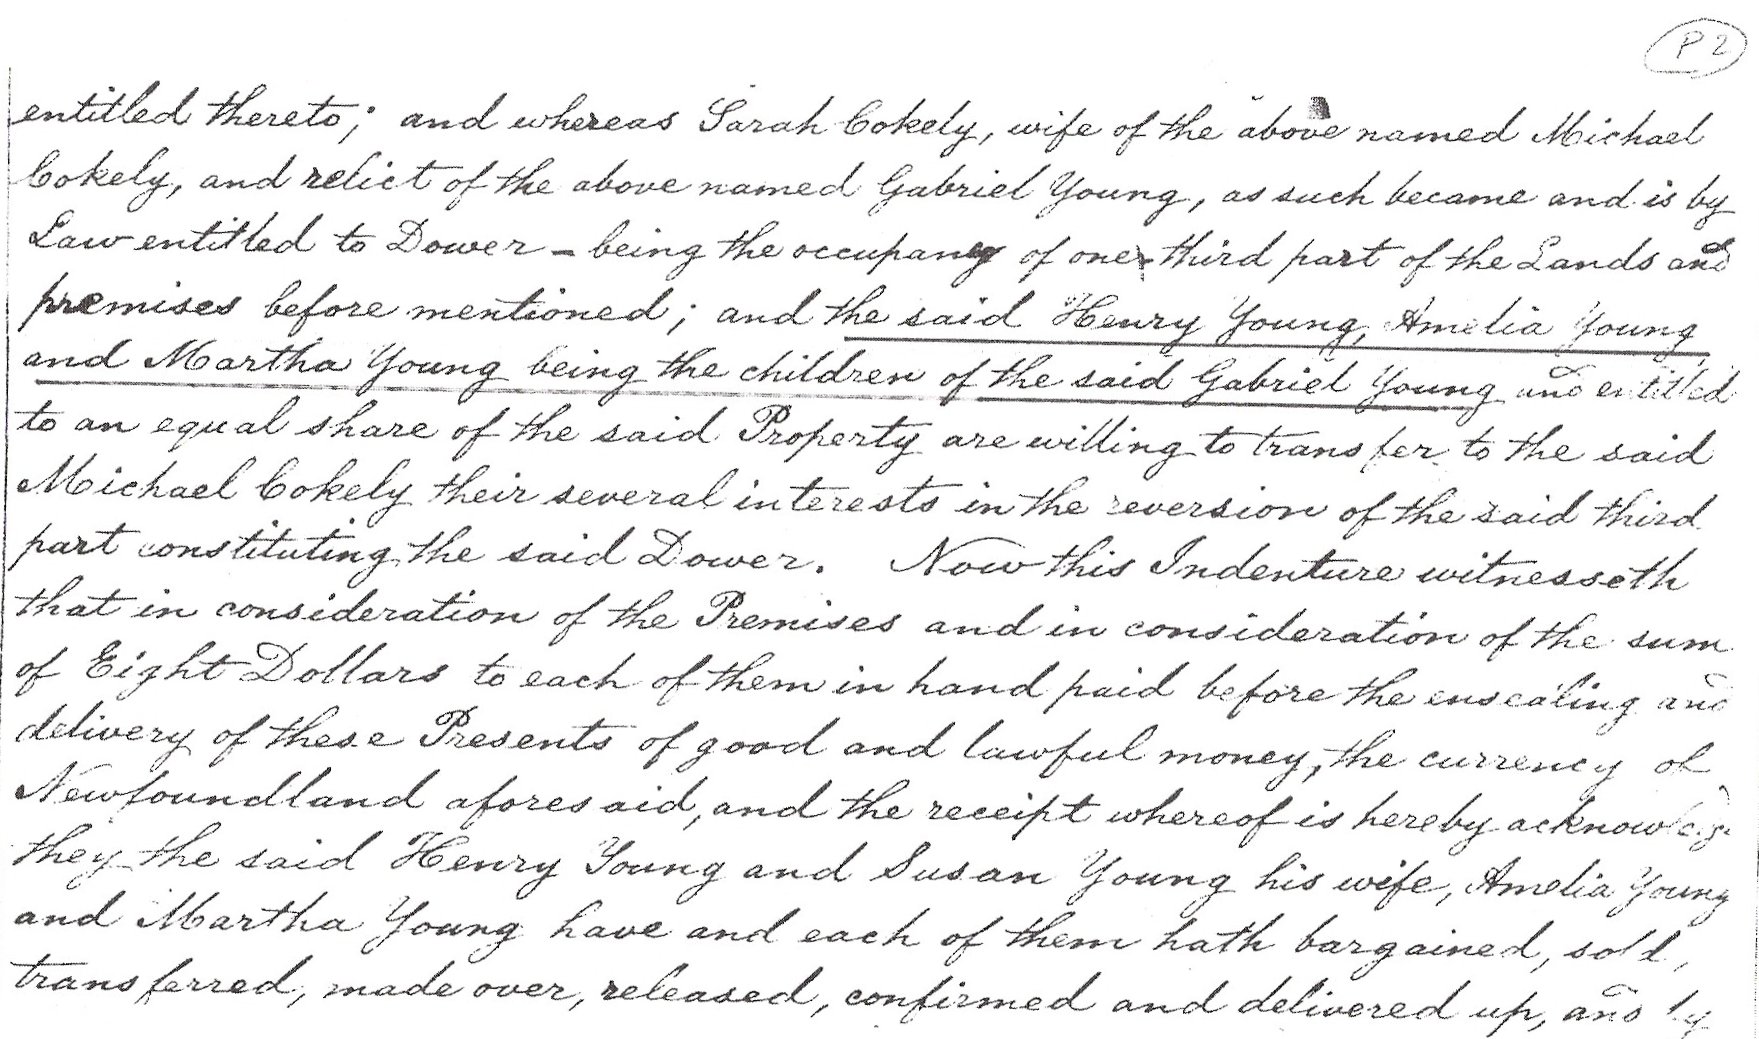 P 2
entitled thereto; and whereas Sarah Cokely, wife of the above named Michael
Cokely, and relict of the above named Gabriel Young, as such became and is by
Law entitled to Dower - being the occupancy of one-third part of the Lands and
premises before mentioned; and the said Henry Young, Amelia Young
and Martha Young being the children of the said Gabriel Young and entitled
to an equal share of the said Property are willing to transfer to the said
Michael Cokely their several interests in the reversion of the said third
part constituting the said Dower. Now this Indenture witnesseth
that in consideration of the Premises and in consideration of the sum
of Eight Dollars to each of them in hand paid before the ensealing and
delivery of these Presents of good and lawful money, the currency of
Newfoundland aforesaid, and the receipt whereof is hereby
they the said Henry Young and Susan Young his wife, Amelia Young
and Martha Young have and each of them hath bargained, sold,
transferred, made over, released, confirmed and delivered up, and by